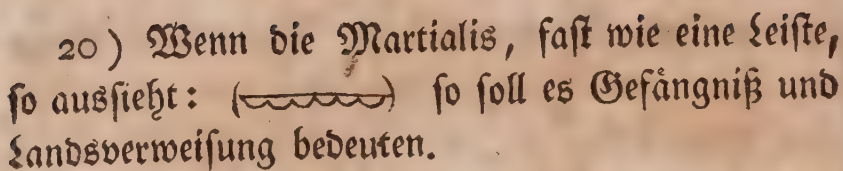 20) Wenn die Martialis, faſt wie eine Leiſte,
ſo ausſieht: ( ) ſo ſoll es Gefängniß und
Landsverweiſung bedeuten.